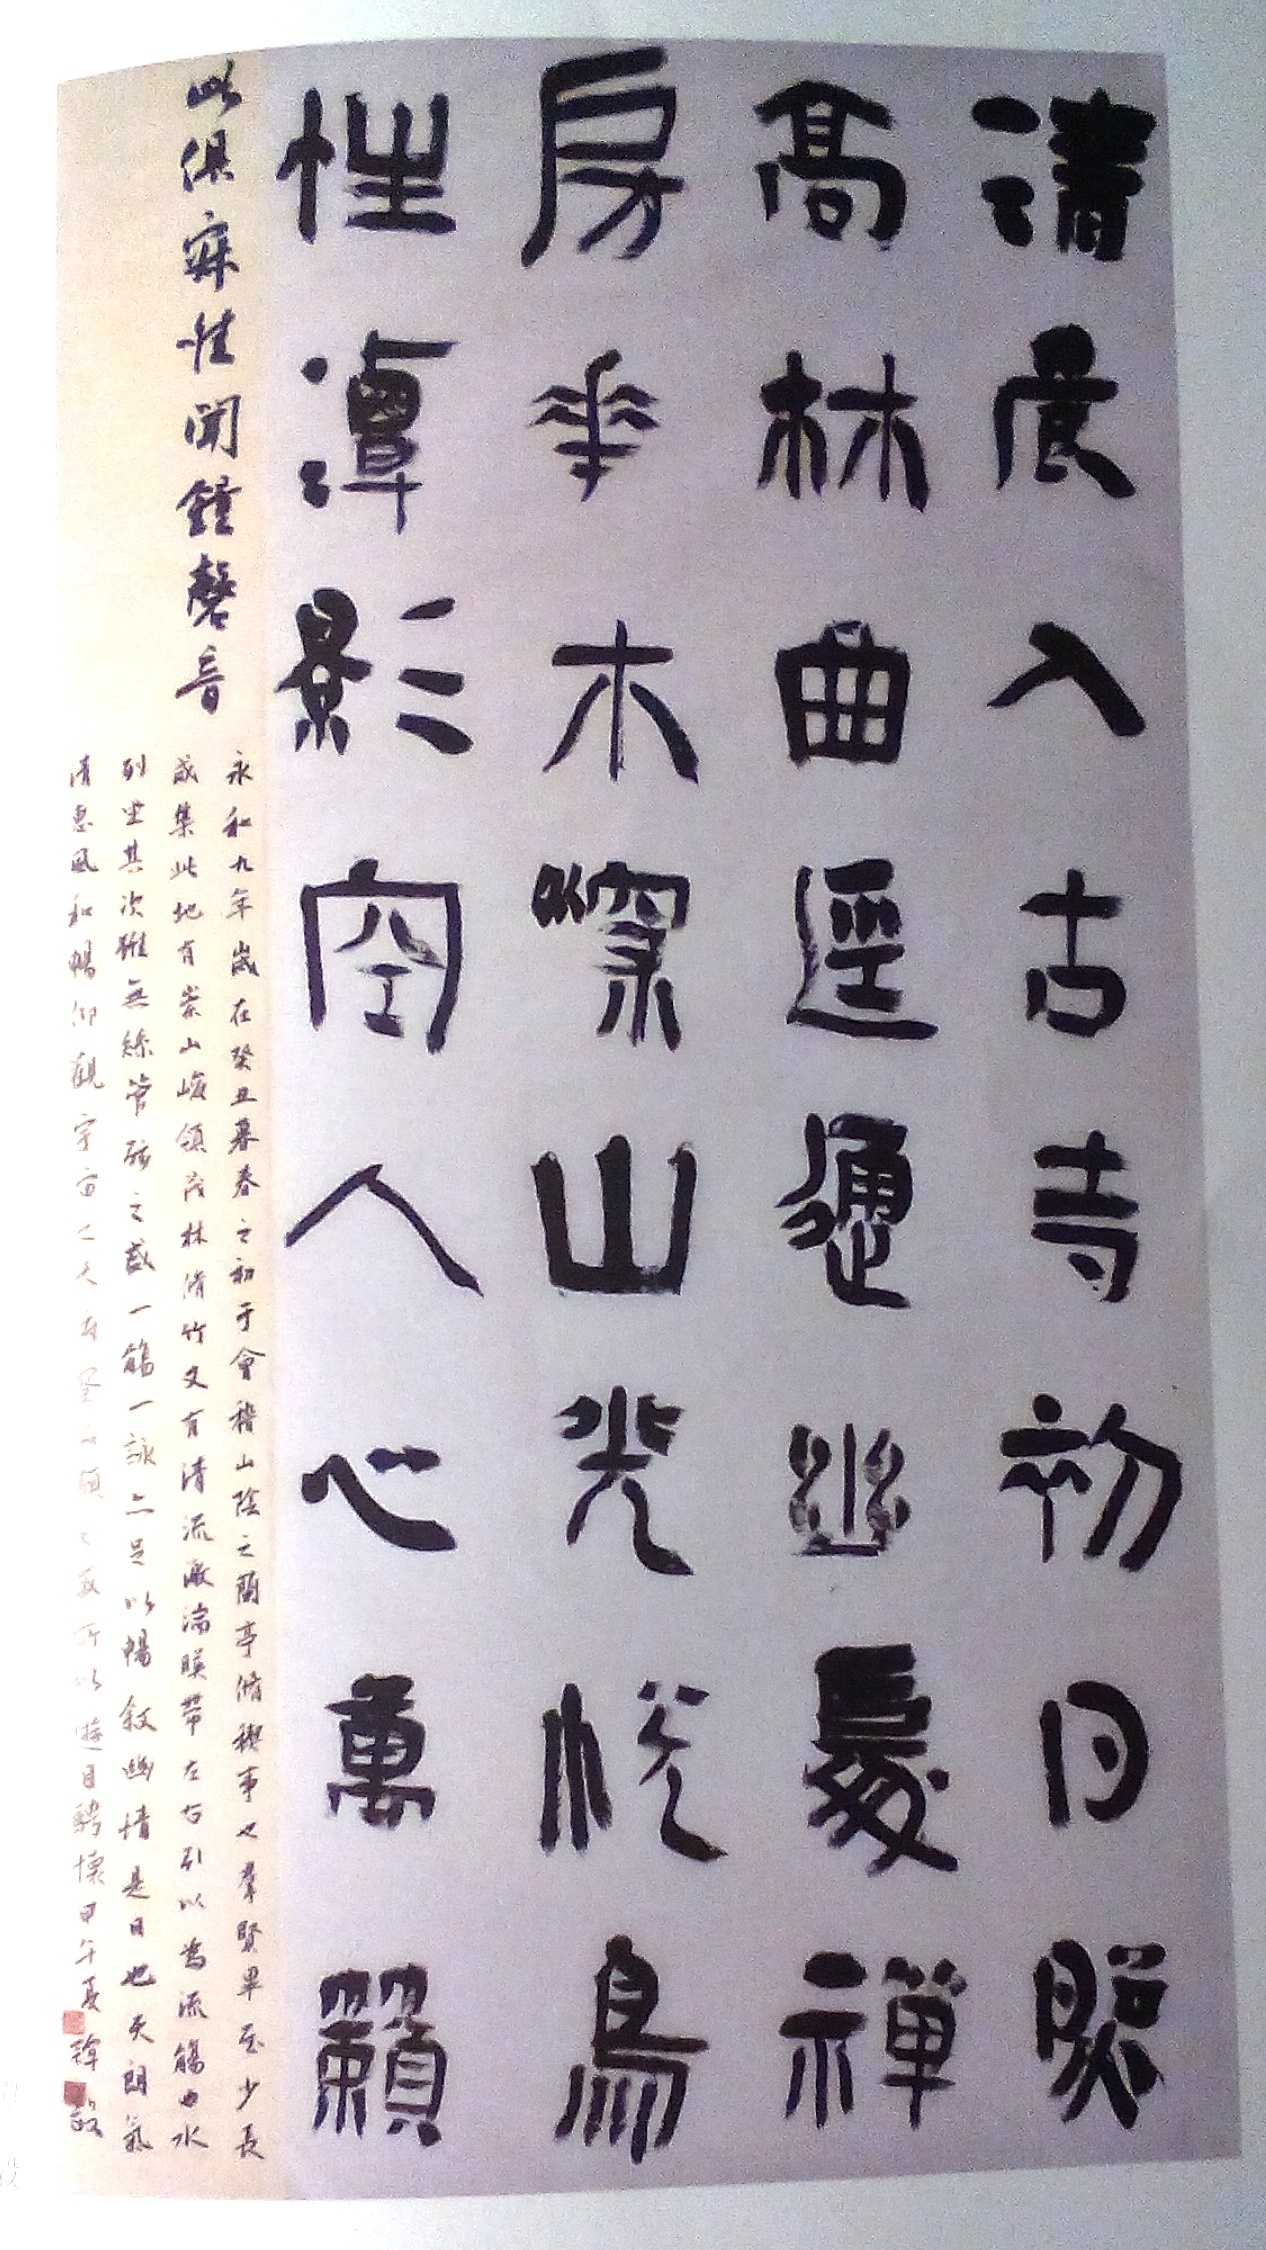 清晨入古寺初日照
高林曲逕通幽處禪
房華木深山光悅鳥
性潭影空人心萬籟
此俱寂惟聞鐘磬音
永和九年歲在癸丑暮春之初于會稽山陰之蘭亭脩禊事也羣賢畢至少長
咸集此地有崇山峻領茂林脩竹又有清流激湍暎帶左右引以為流觴曲水
列坐其次雖無絲管弦之盛一觴一詠亦足以暢敘幽情是日也天朗氣
清惠風和暢仰觀宇宙之大俯察品類之盛所以遊目騁懷甲午夏韓